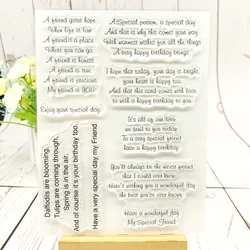 A friend gives hope
When life is low
A friend is a place
When you can go.
A friend is honest
A friend is true
A friend is precious
My friend is YOU!
Enjoy your special day!
Daffodils are blooming,
Tulips are coming through,
Spring is in the air,
And of course it's your birthday too.
Have a very special day my Friend
A Special person, a special day
And that is why this comes your way
With warmest wishes for all the things
A very happy birthday brings
I hope that today, your day is bright,
your heart is happy too.
And that this card comes with love,
to wish a happy birthday to you.
It's all of our love
we send to you today
To a very special friend
have a happy birthday
You'll always be the nicest friend
that I could ever know.
Here's wishing you a wonderful day
the best you've ever known.
Have a wonderful day
My Special Friend